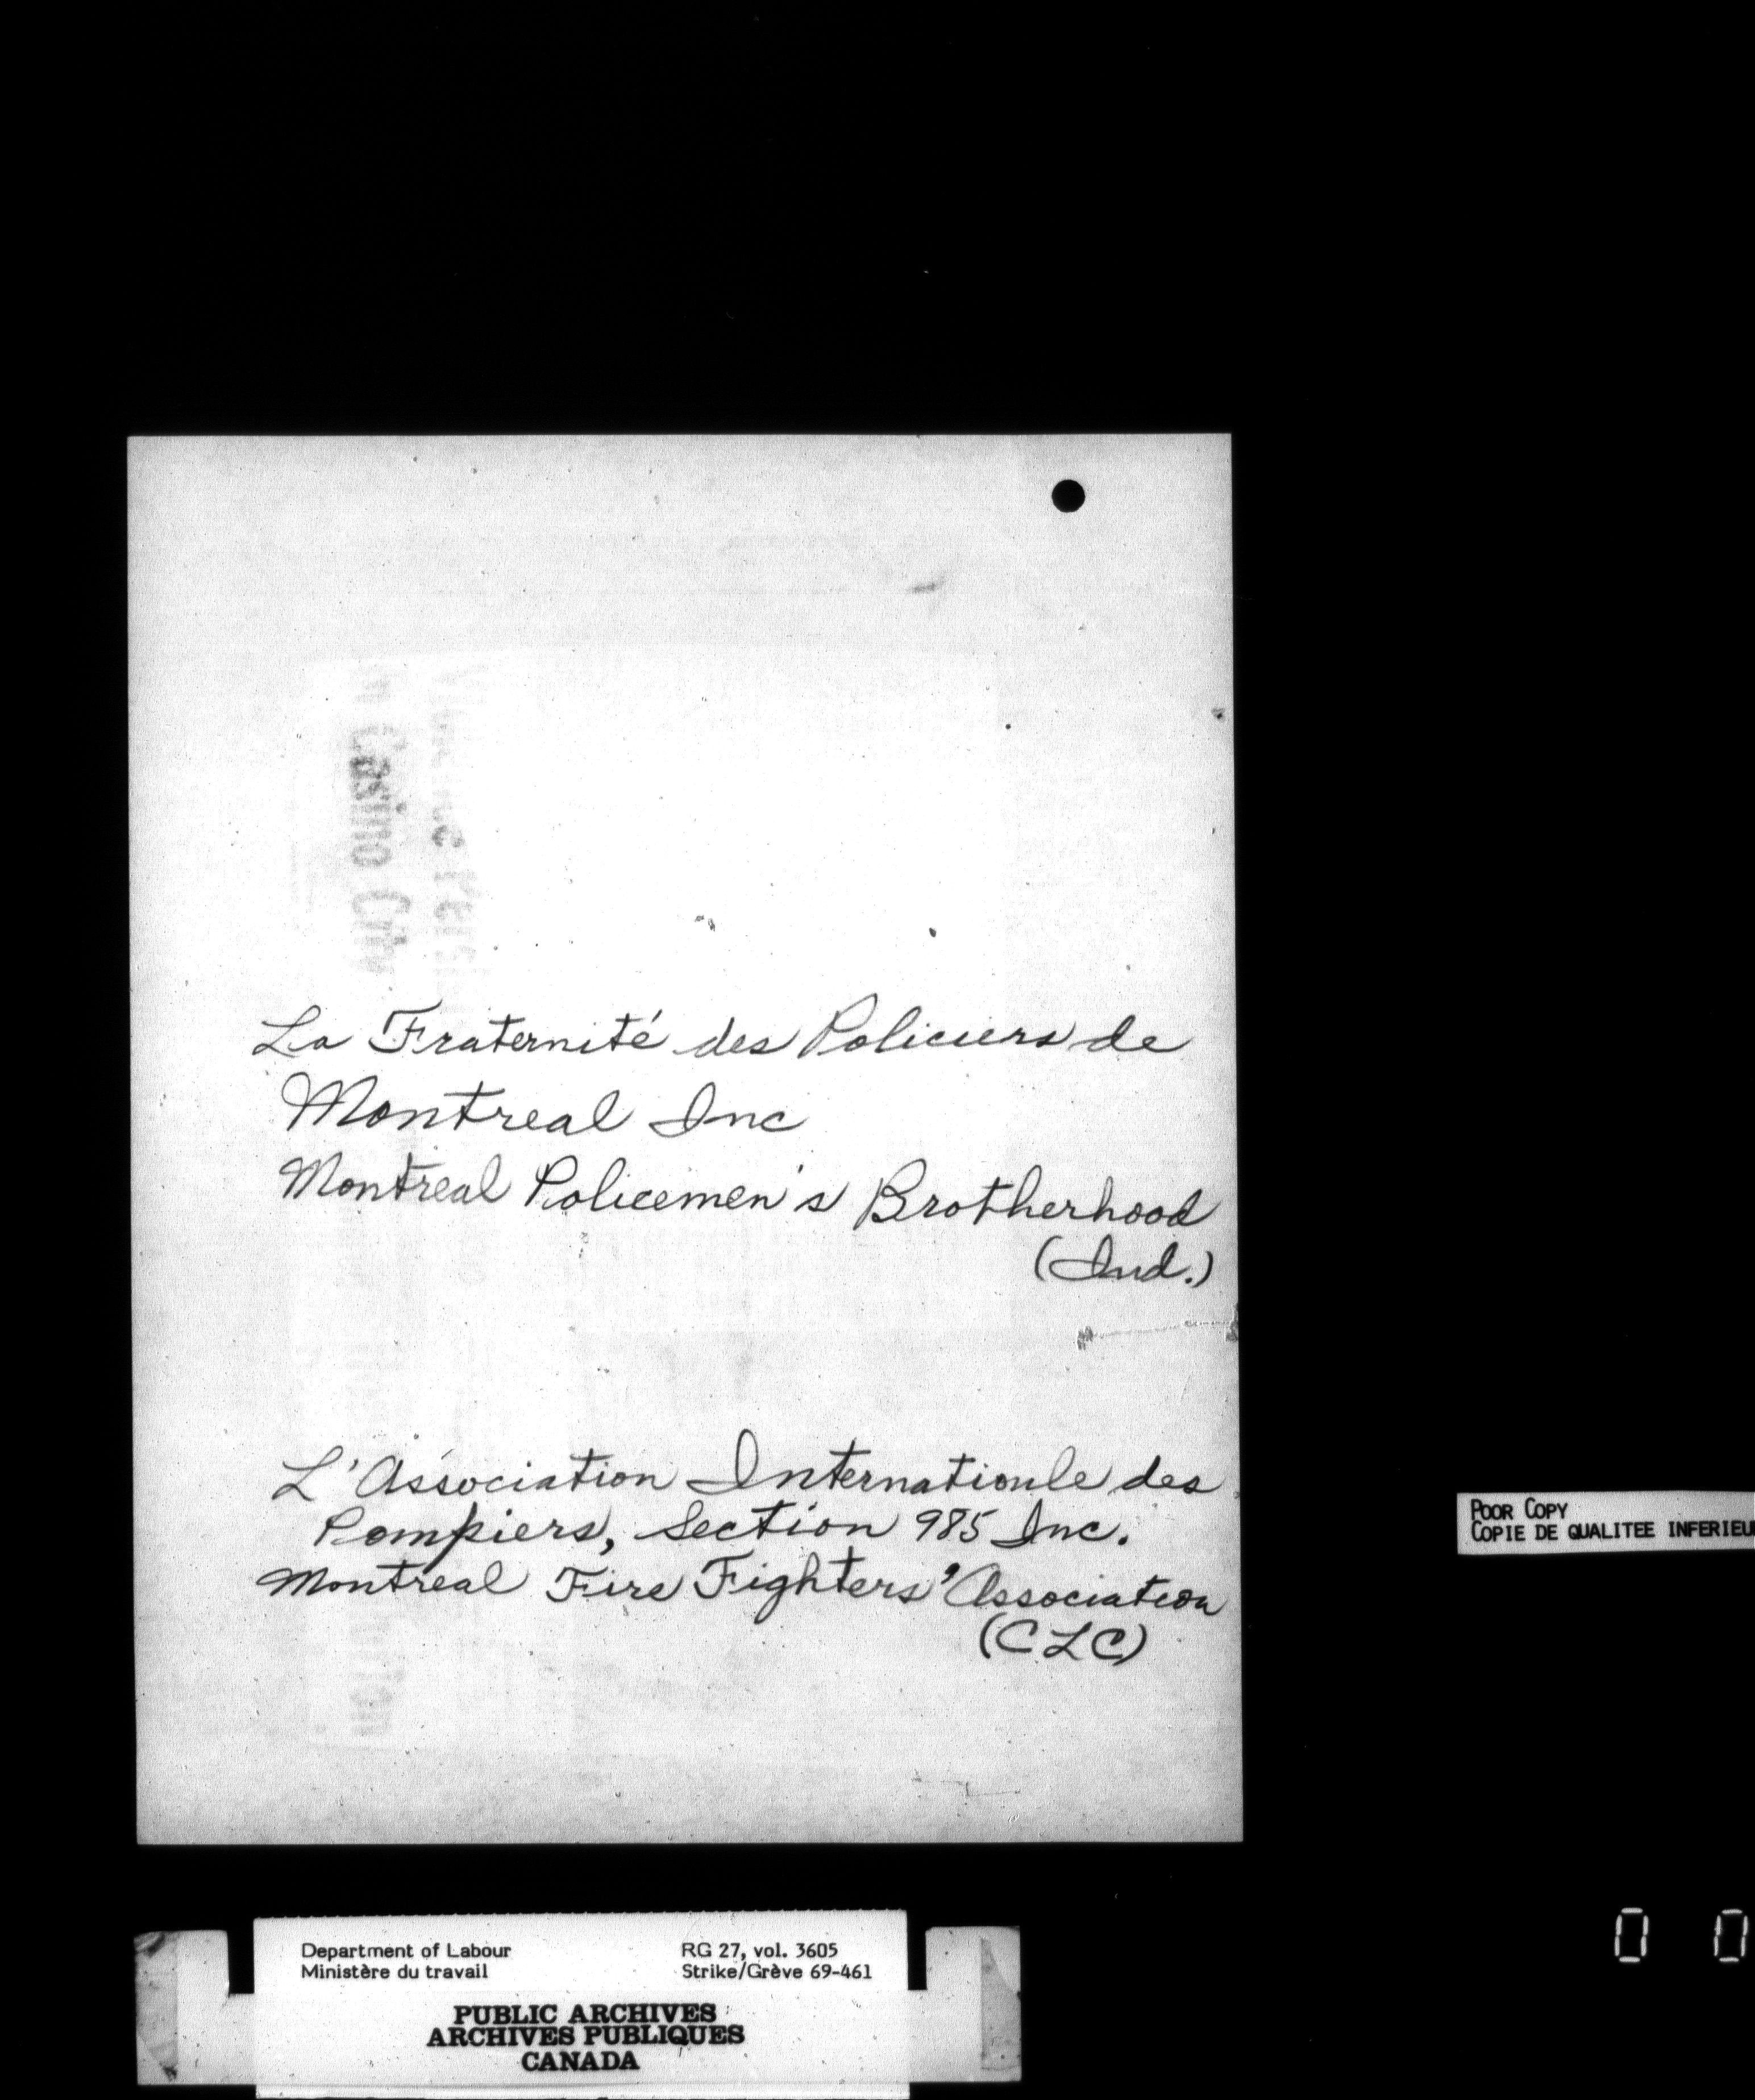 La Fraternité des Policiers de
Montreal Inc
Montreal Policemen's Brotherhood
(Ind.)
L'Association Internationle des
Pompiers, Section 985 Inc.
Montreal Fire Fighters' Association
(CLC)
POOR COPY
COPIE DE QUALITEE INFERIEU
0 0
Department of Labour
Ministère du travail
RG 27, vol. 3605
Strike/Grève 69-461
PUBLIC ARCHIVES
ARCHIVES PUBLIQUES
CANADA